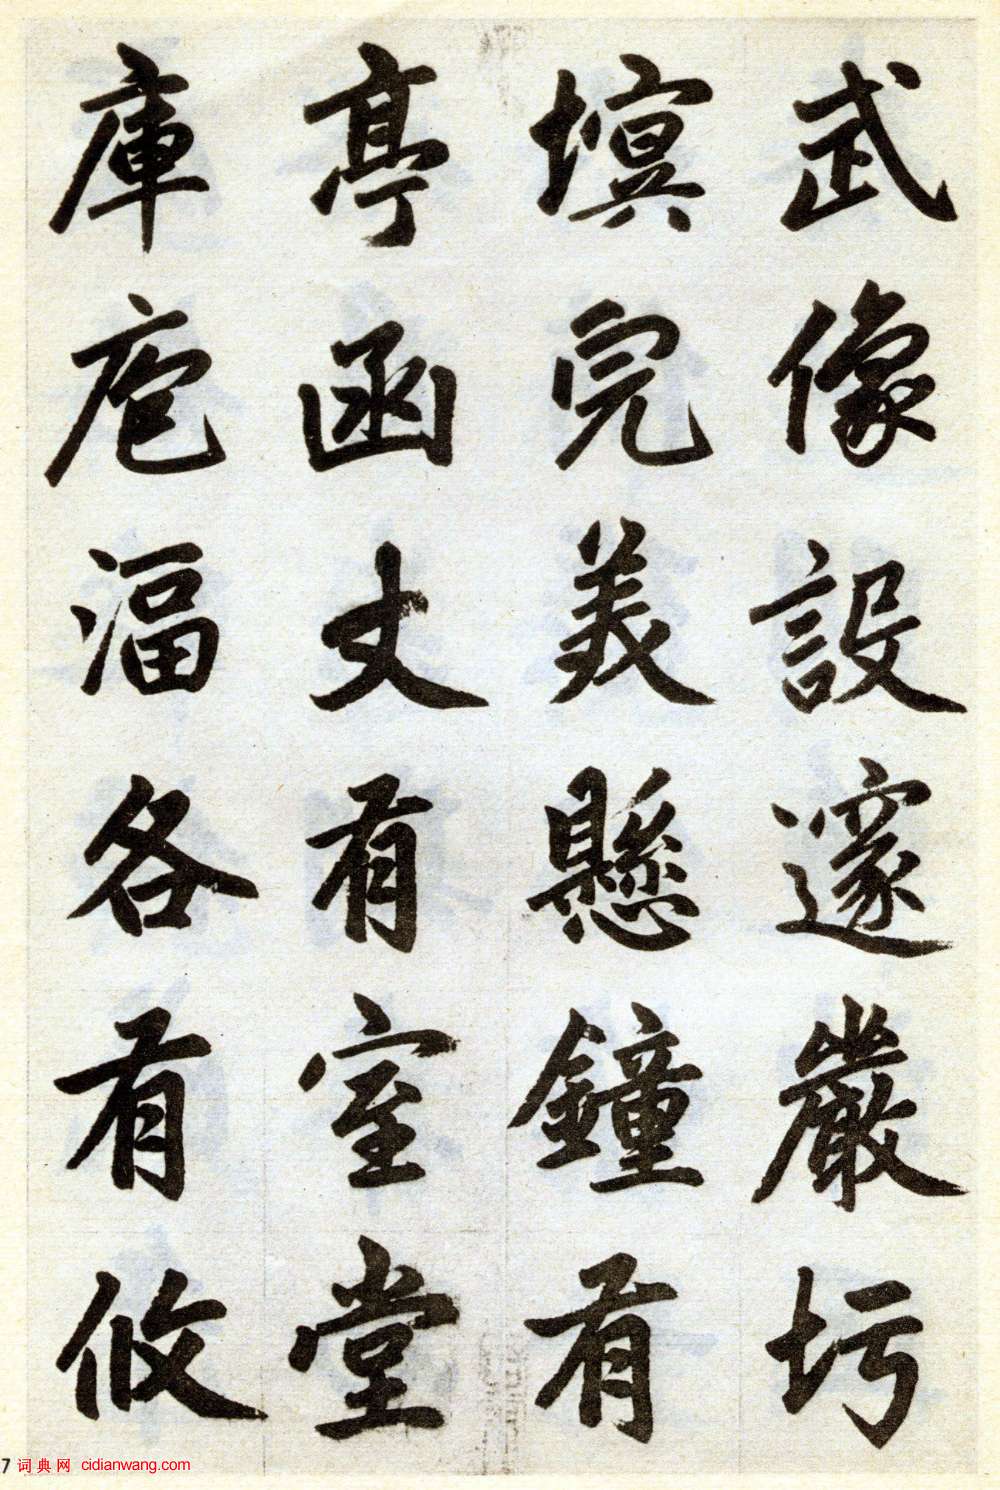 武像設邃嚴圬
塓完美懸鐘有
亭函丈有室堂
庫庖湢各有攸
7 词典网 cidianwang.com